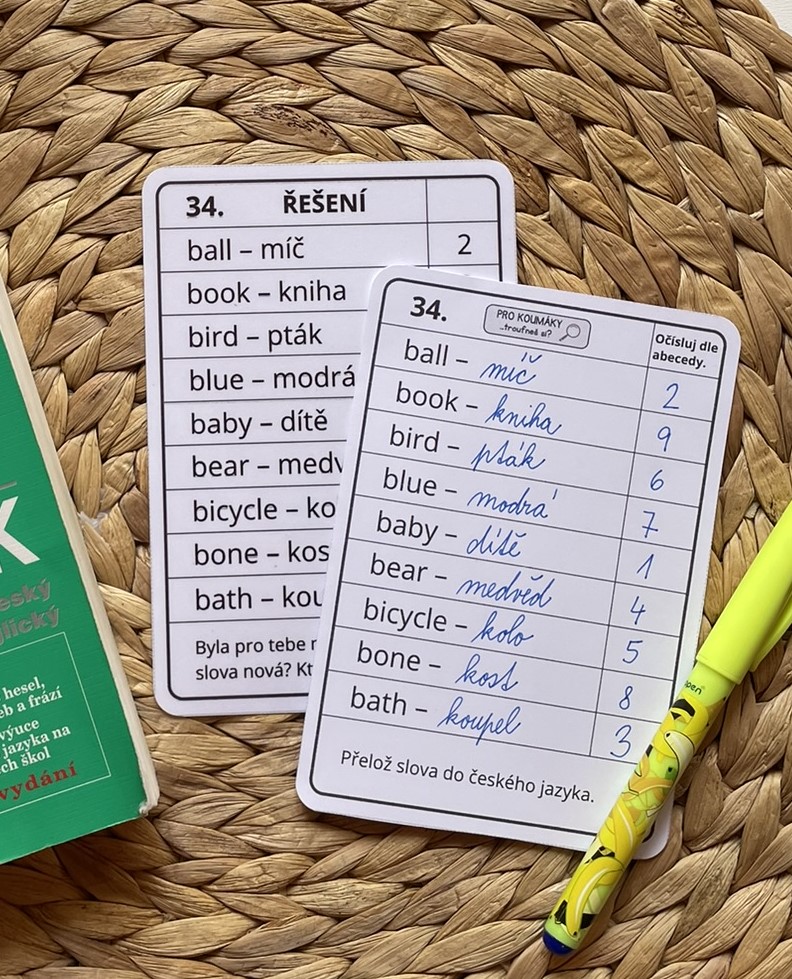 34. ŘEŠENÍ
ball – míč 2
book – kniha
bird – pták
blue – modrá
baby – dítě
bear –
bicycle –
bone –
bath –
Byla pro tebe
slova nová?
34.
PRO KOUMÁKY
...troufneš si?
Očísluj dle
abecedy.
ball – míč 2
book – kniha 9
bird – pták 6
blue – modrá 7
baby – dítě 1
bear – medvěd 4
bicycle – kolo 5
bone – kost 8
bath – koupel 3
Přelož slova do českého jazyka.
K
hesel,
a frází
jazyka na
škol
vydání